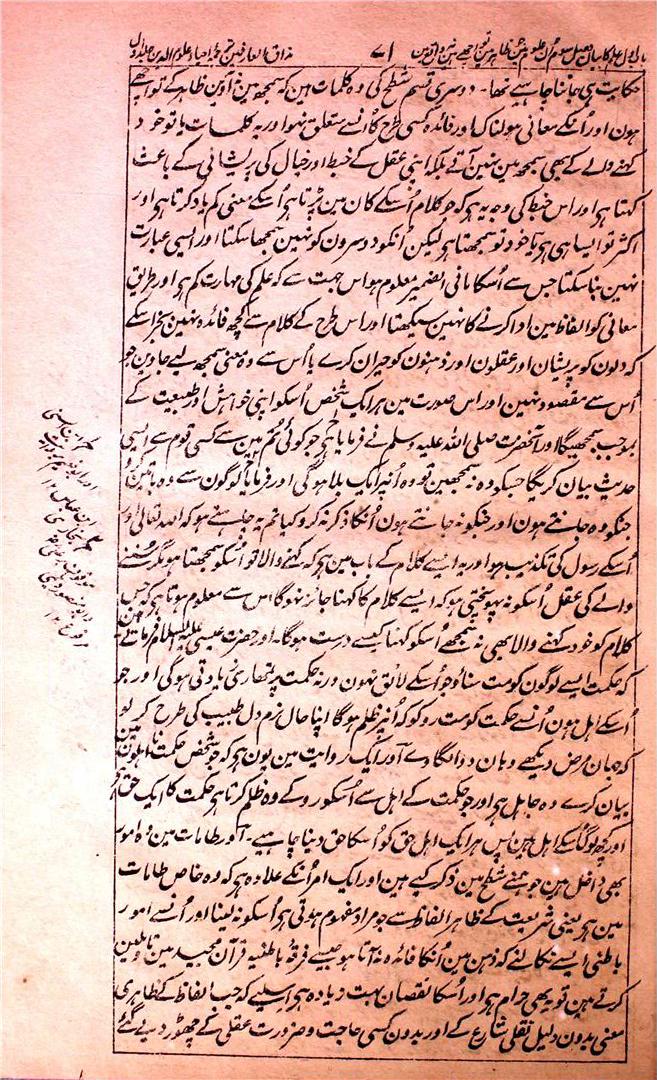 باب اول علم کا بیان فصل سوم اُن علوم میں جن کو ظاہر میں تو اچھے ہیں ۷۱ مذاق العارفین ترجمہ احیاء علوم الدین جلد اول
حکایت ہی جاننا چاہیے تھا۔ دوسری قسم شطح کی وہ کلمات ہین کہ سمجھ مین نہ آوین ظاہر کے تو اچھے
ہون اور اُنکے معانی ہولناک اور فائدہ کسی طرح کا اُنسے متعلق نہو اور یہ کلمات یا تو خود
کہنے والے کے بھی سمجھ مین نہین آتے بلکہ اپنی عقل کے خبط اور خیال کی پریشانی کے باعث
کہتا ہی اور اس خبط کی وجہ یہ ہی کہ جو کلام اُسکے کان مین پڑتا ہی اُسکے معنی کم یاد کرتا ہی اور
اکثر تو ایسا ہی ہی یا خود تو سمجھتا ہی لیکن اُنکو دوسرون کو نہین سمجھا سکتا اور ایسی عبارت
نہین بنا سکتا جس سے اُسکا ما فی الضمیر معلوم ہو اس جہت سے کہ علم کی مہارت کم ہی اور طریق
معانی کو الفاظ مین ادا کرنے کا نہین سیکھتا اور اس طرح کے کلام سے کچھ فائدہ نہین بجز اسکے
کہ دلون کو پریشان اور عقلون اور ذہنون کو حیران کرے یا اُس سے وہ معنی سمجھ لیے جاوین جو
اُس سے مقصود نہین اور اس صورت مین ہر ایک شخص اُسکو اپنی خواہش اور طبیعت کے
بموجب سمجھیگا اور آنحضرت صلی اللہ علیہ وسلم نے فرمایا ہی جو کوئی تم مین سے کسی قوم سے ایسی
حدیث بیان کریگا جسکو وہ نہ سمجھین تو وہ اُنپر ایک بلا ہوگی اور فرمایا کہ لوگون سے وہ باتین کرو
جنکو وہ جانتے ہون اور جنکو نہ جانتے ہون اُنکا ذکر نہ کرو کیا تم یہ چاہتے ہو کہ اللہ تعالی اور
اُسکے رسول کی تکذیب ہو اور یہ ایسے کلام کے باب مین ہی کہ کہنے والا تو اُسکو سمجھتا ہو مگر سننے
والے کی عقل اُسکو نہ پہونچتی ہو کہ ایسے کلام کا کہنا جائز نہوگا اس سے معلوم ہوتا ہی کہ جس
کلام کو خود کہنے والا بھی نہ سمجھے اُسکو کہنا کیسے درست ہوگا۔ اور حضرت عیسی علیہ السلام فرماتے ہین
کہ حکمت ایسے لوگون کو مت سناؤ جو اُسکے لائق نہون ورنہ حکمت پر تمھاری زیادتی ہوگی اور جو
اُسکے اہل ہون اُنسے حکمت کو مت روکو کہ اُنپر ظلم ہوگا اپنا حال نرم دل طبیب کی طرح کر لو
کہ جہان مرض دیکھے وہان دوا لگا دے اور ایک روایت مین یون ہی کہ جو شخص حکمت نااہلون مین
بیان کرے وہ جاہل ہی اور جو حکمت کے اہل سے اُسکو روکے وہ ظلم کرتا ہی حکمت کا ایک حق ہی
اور کچھ لوگ اُسکے اہل ہین پس ہر ایک اہل حق کو اُسکا حق دینا چاہیے۔ اور طامات مین وہ امور
بھی داخل ہین جو ہمنے شطح مین ذکر کیے ہین اور ایک امر اُنکے علاوہ ہی کہ وہ خاص طامات
مین ہی یعنی شریعت کے ظاہر الفاظ سے جو مراد مفہوم ہوتی ہی اُسکو نہ لینا اور اُنسے امور
باطنی ایسے نکالنے کہ ذہن مین اُنکا فائدہ نہ آتا ہو جیسے فرقہ باطنیہ قرآن مجید مین تاویلین
کرتے ہین تو یہ بھی حرام ہی اور اُسکا نقصان بہت زیادہ ہی اسلیے کہ جب الفاظ کے ظاہری
معنی بدون دلیل نقلی شارع کے اور بدون کسی حاجت و ضرورت عقلی کے چھوڑ دیے گئے